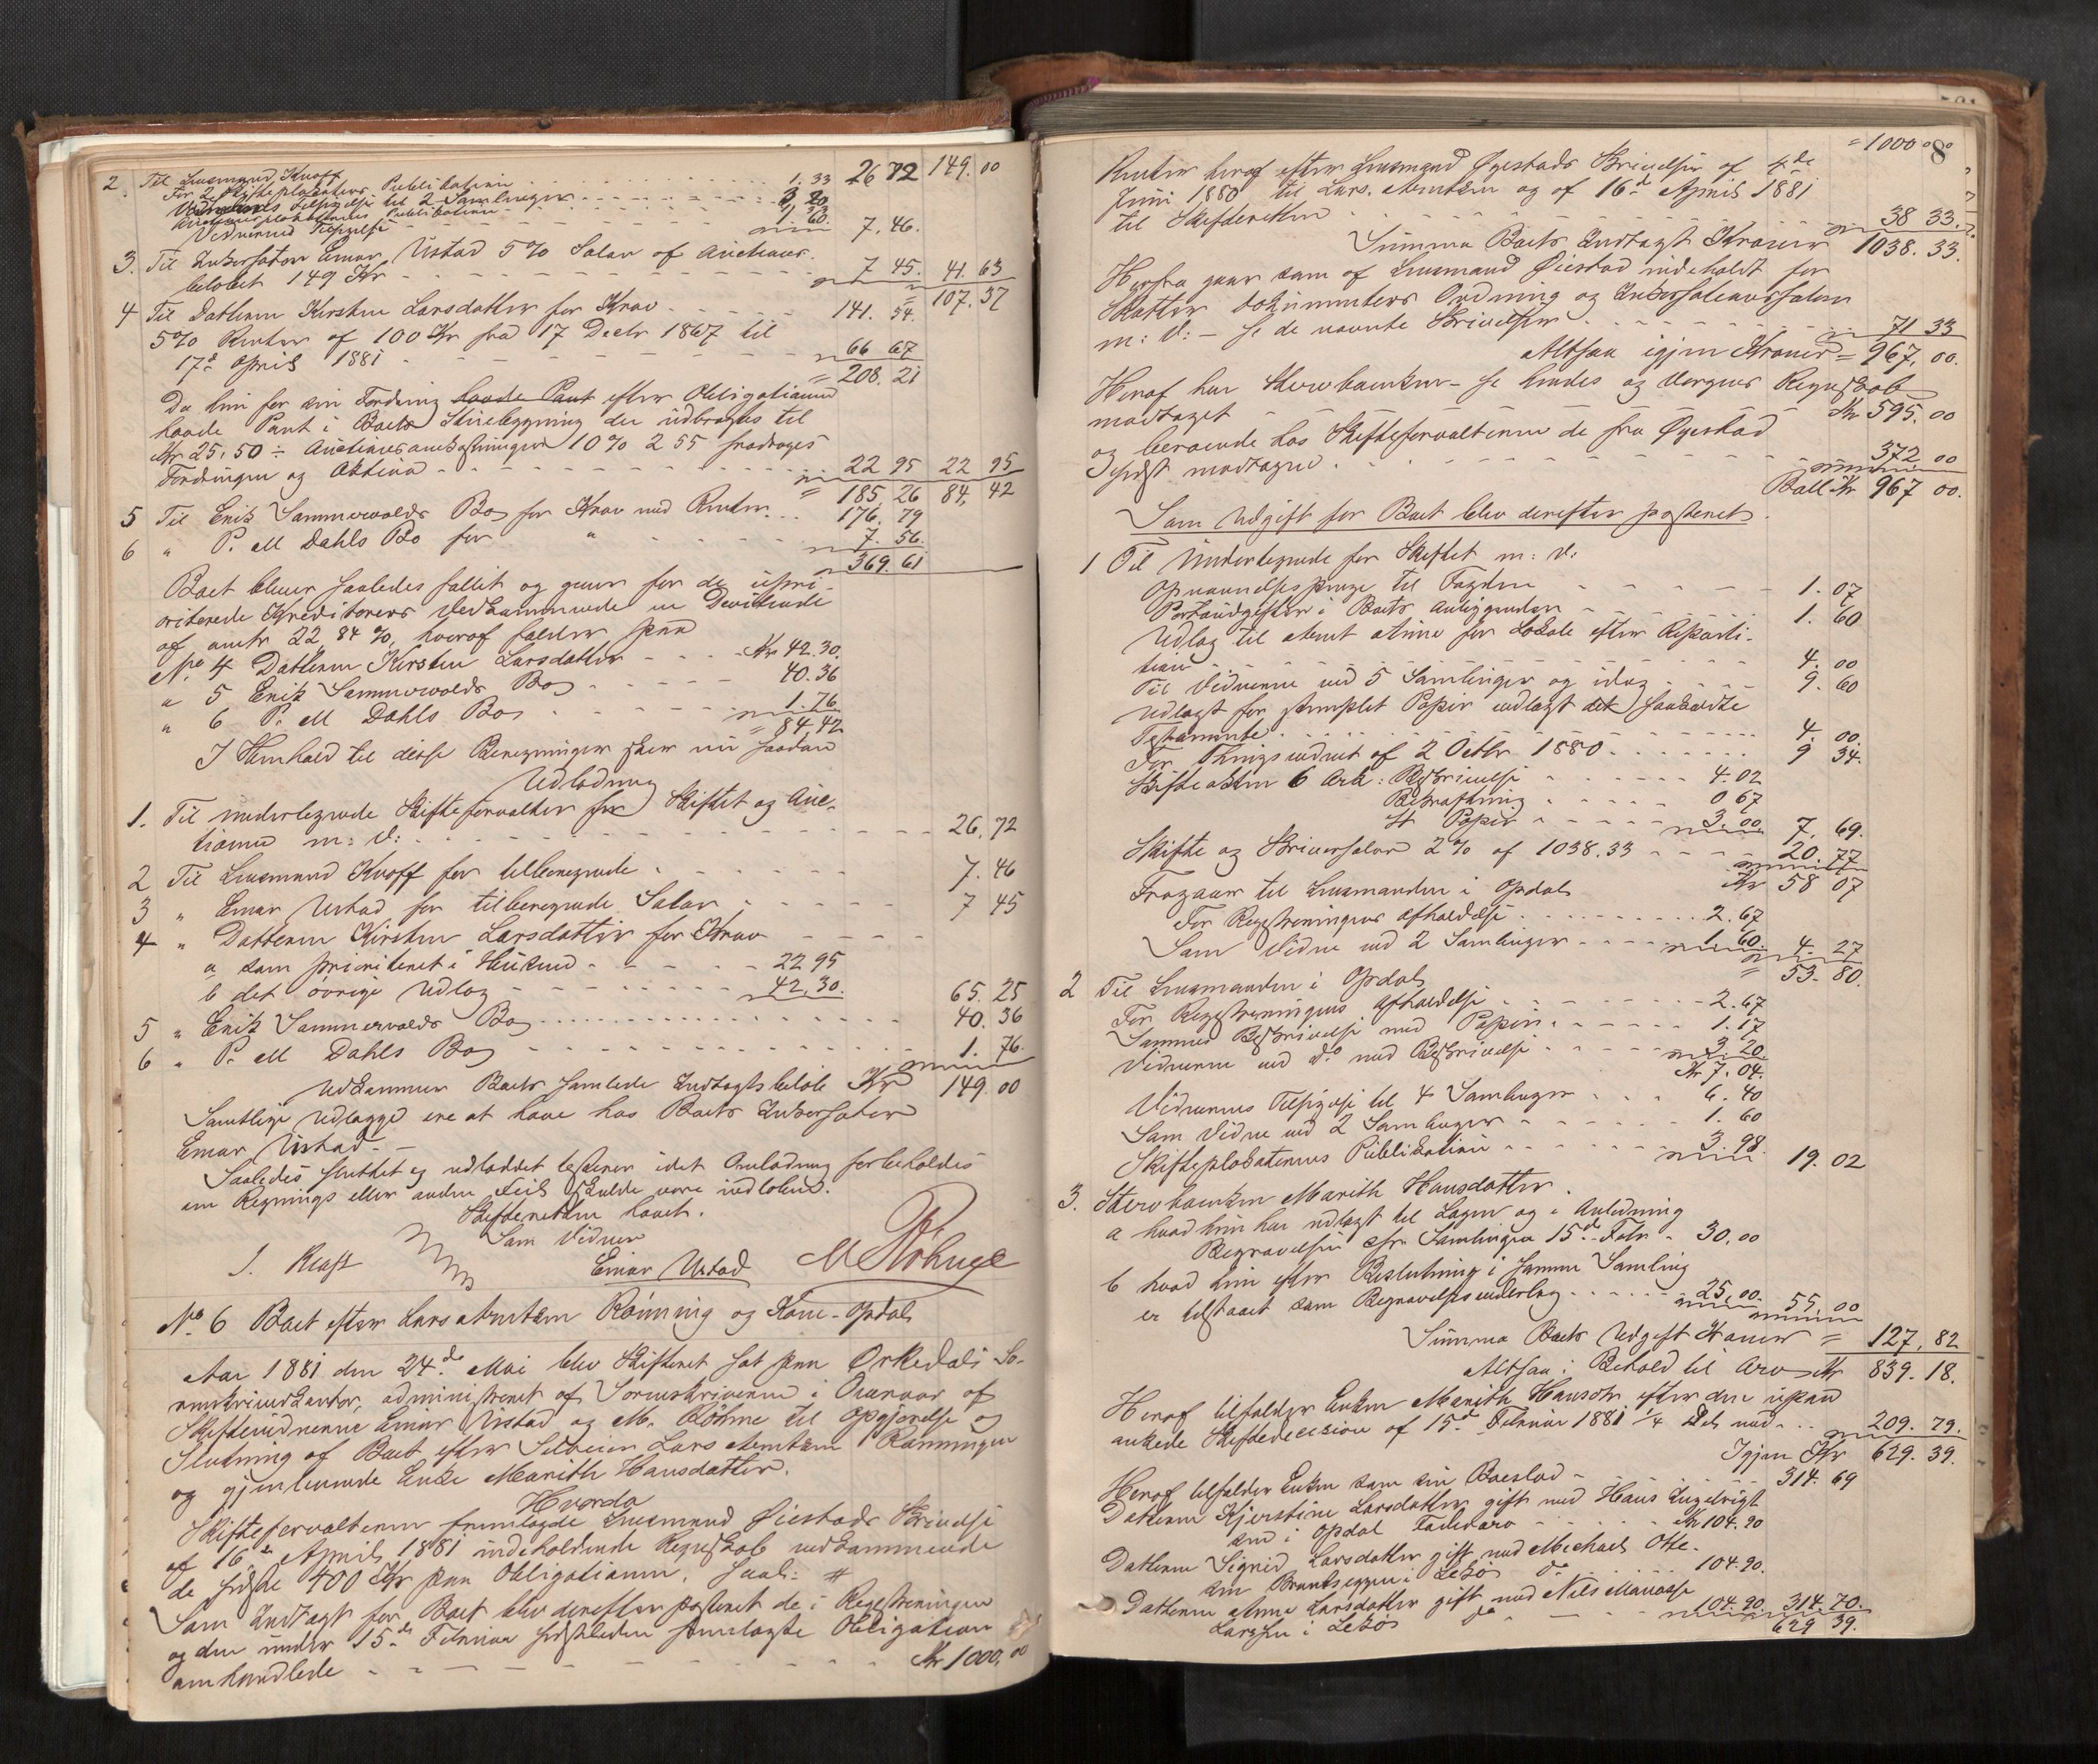 2. Til Lensmand Knoff 26 72 149. 00
For 2 Skifteplakaters Publikation 1. 33
Vidnernes Tilsigelse til 2 Samlinger 3 20
Auctionsplakatens Publikation 1. 33
Vidnernes Tilsigelse 1 60. 7. 46.
3. Til Inkassator Einar Ustad 5% Salær af Auctions-
beløbet 149 Kr 7 45. 41. 63
= 107. 37
4 Til Datteren Kirsten Larsdatter for Krav 141. 54.
5% Renter af 100 Kr fra 17 Decbr 1867 til
17de April 1881 66 67
= 208. 21
Da hun for sin Fordring havde Pant efter Obligationen
havde Pant i Boets Huusbygning der udbragtes til
Kr 25,50 ÷ Auctionsomkostninger 10% 2 55 fradrages
Fordringen og Aktiva 22 95 22 95
= 185. 26 84, 42
5 Til Erik Sammervolds Bo for Krav med Renter 176. 79
6 " P. M Dahls Bo for " 7. 56.
369. 61
Boet bliver saaledes fallit og giver for de upri-
oriterede Kreditorers Vedkommende en Dividende
af omtr 22,84 %, hvoraf falder paa
No 4 Datteren Kirsten Larsdatter Kr 42. 30.
" 5 Erik Sammervolds Bo 40. 36
" 6 P. M Dahls Bo 1. 76
= 84. 42
I Henhold til disse Beregninger skeer nu saadan
Udlodning
1. Til undertegnede Skifteforvalter for Skiftet og Auc-
tionen m: v: 26. 72
2 Til Lensmand Knoff for tilberegnede 7. 46
3 " Einar Ustad for tilberegnede Salær 7 45
4 " Datteren Kirsten Larsdatter for Krav
a som prioriteret i Huuset 22 95
b det øvrige Udlæg 42. 30. 65. 25
5 " Erik Sammervolds Bo 40. 36
6 " P. M Dahls Bo 1. 76.
Udkommer Boets samlede Indtægtsbeløb Kr 149. 00
Samtlige Udlægge ere at hæve hos Boets Inkassator
Einar Ustad. —
Saaledes sluttet og udloddet testerer idet Omlodning forbeholdes
om Regnings eller anden Feil skulde være indløben.
Skifteretten hævet.
Som Vidner
J. Kraft Einar Ustad M Röhme
No 6 Boet efter Lars Arntsen Rönning og Kone - Opdal
Aar 1881 den 24de Mai blev Skifteret sat paa Orkedals So-
renskriverkontor, administreret af Sorenskriveren i Overvær af
Skiftevidnerne Einar Ustad og M. Röhme til Opgjørelse og
Slutning af Boet efter Selveier Lars Arntsen Rönningen
og gjenlevende Enke Marith Hansdatter.
Hvorda
Skifteforvalteren fremlagde Lensmand Øiestads Skrivelse
af 16de April 1881 indeholdende Regnskab vedkommende
de sidste 400 Kr paa Obligationen. Saal: #
Som Indtægt for Boet blev derefter posteret de i Registreringen
og den under 15de Februar sidstleden fremlagte Obligation
omhandlede Kr 1000. 00
8
= 1000 00
Renter heraf efter Lensmand Øyestads Skrivelser af 4de
Juni 1880 til Lars Arntsen og af 16de April 1881
til Skifteretten 38 33.
Summa Boets Indtægt Kroner 1038. 33.
Herfra gaar som af Lensmand Øiestad indeholdt for
Skatter Dokumenters Ordning og Inkassationssalær
m: v: — se de nævnte Skrivelser 71 33
Altsaa igjen Kroner = 967. 00.
Heraf har Stervboenken - se hendes og Verges Regnskab
modtaget Kr 595. 00
og beroende hos Skifteforvalteren de fra Øyestad
sidst modtagne 372 00
Ball Kr 967 00.
Som Udgift for Boet blev derefter posteret.
1 Til Undertegnede for Skiftet m: v:
Opnævnelsespenge til Fogden 1. 07
Portoudgifter i Boets Anliggender 1. 60
Udlæg til Arnt Arne for Lokale efter Reparti-
tion 4. 00
Til Vidnerne ved 5 Samlinger og idag 9. 60
Udlagt for stemplet Papir udlagt det saakaldte
Testamente 4. 00.
For Thingsvidnet af 2 Octbr 1880 9 34.
Skifteakten 6 Ark: Beskrivelse 4. 02
Bekræftning 0 67
St Papir 3. 00. 7. 69.
Skifte og Skriversalær 2% af 1038. 33 20. 77
Kr 58 07
Fragaar til Lensmanden i Opdal
For Registreringens Afholdelse 2. 67
Som Vidne ved 2 Samlinger 1. 60. 4. 27
= 53. 80.
2 Til Lensmanden i Opdal
For Registreringens Afholdelse 2. 67
Sammes Beskrivelse med Papir 1. 17
Vidnerne ved do med Beskrivelse 3. 20.
Kr 7. 04.
Vidnernes Tilsigelse til 4 Samlinger 6. 40
Som Vidne ved 2 Samlinger 1. 60
Skifteplakaternes Publikation 3. 98. 19. 02
3. Stervboenken Marith Hansdatter.
a hvad hun har udlagt til Læge og i Anledning
Begravelsen cfr Samlingen 15de Febr. 30. 00
b hvad hun efter Beslutning i samme Samling
er tilstaaet som Begravelsesvederlag 25. 00. 55. 00
Summa Boets Udgift Kroner = 127. 82
Altsaa i Behold til Arv Kr 839. 18.
Heraf tilfalder Enken Marith Hansdtr efter den upaa
ankede Skiftedecision af 15de Februar 1881 1/4 Del med 209. 79.
Igjen Kr 629. 39.
Heraf tilfalder Enken som sin Boeslod 314. 69
Datteren Kjerstine Larsdatter gift med Hans Ingebrigt-
sen i Opdal Fadderarv Kr 104. 90
Datteren Sigrid Larsdatter gift med Michael Otte-
sen Brandseggen i Lexö do 104. 90.
Datteren Anne Larsdatter gift med Nils Manasse
Larssen i Lexö do 104. 90. 314. 70.
629 39.